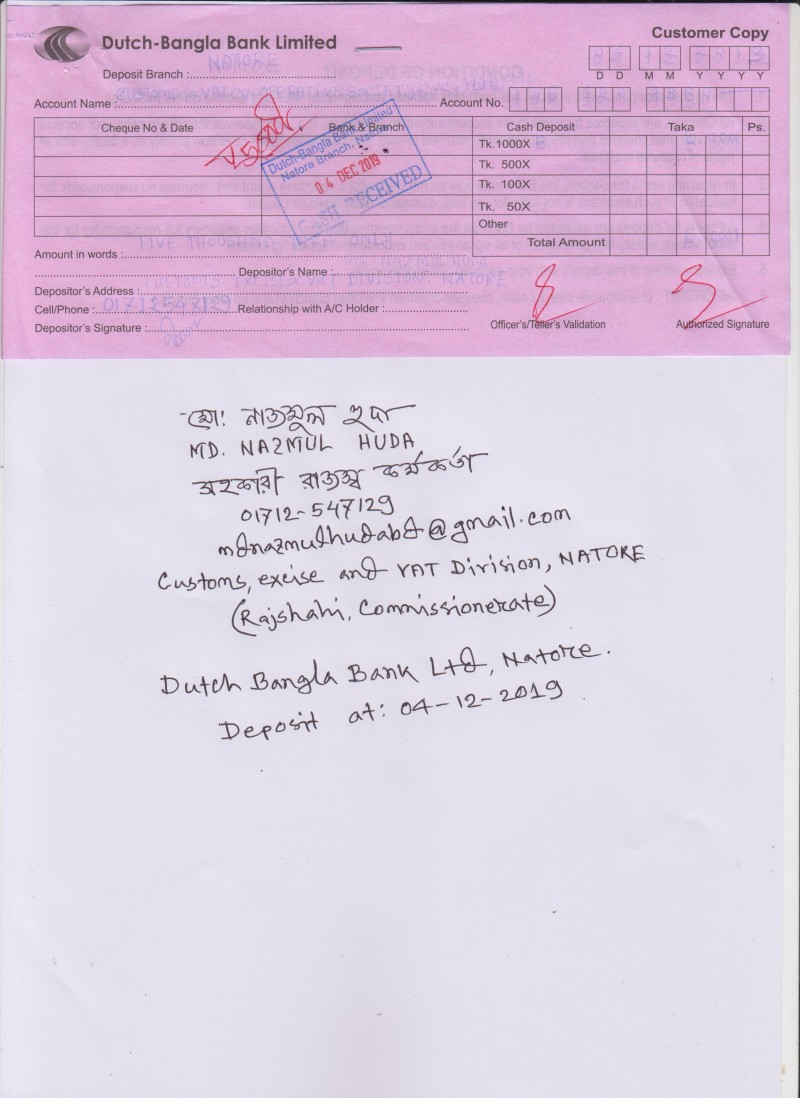 Dutch-Bangla Bank Limited
Customer Copy
Deposit Branch : NATORE
D D M M Y Y Y Y
Account Name :
Account No.
Cheque No & Date
Bank & Branch
Cash Deposit
Taka
Ps.
Tk. 1000X
Tk. 500X
Tk. 100X
Tk. 50X
Other
Total Amount
Dutch-Bangla Bank Limited
Natore Branch, Natore
04 DEC 2019
CASH RECEIVED
Amount in words : FIVE THOUSAND TAKA ONLY
Depositor's Name : MD. NAZMUL HUDA
Depositor's Address : CUSTOMS EXCISE & VAT DIVISION, NATORE
Cell/Phone : 01712547129 Relationship with A/C Holder :
Depositor's Signature :
Officer's/Teller's Validation
Authorized Signature
মো: নাজমুল হুদা
MD. NAZMUL HUDA
সহকারী রাজস্ব কর্মকর্তা
01712-547129
mdnazmulhudabd@gmail.com
Customs, excise and VAT Division, NATORE
(Rajshahi, Commissionerate)
Dutch Bangla Bank Ltd, Natore.
Deposit at: 04-12-2019